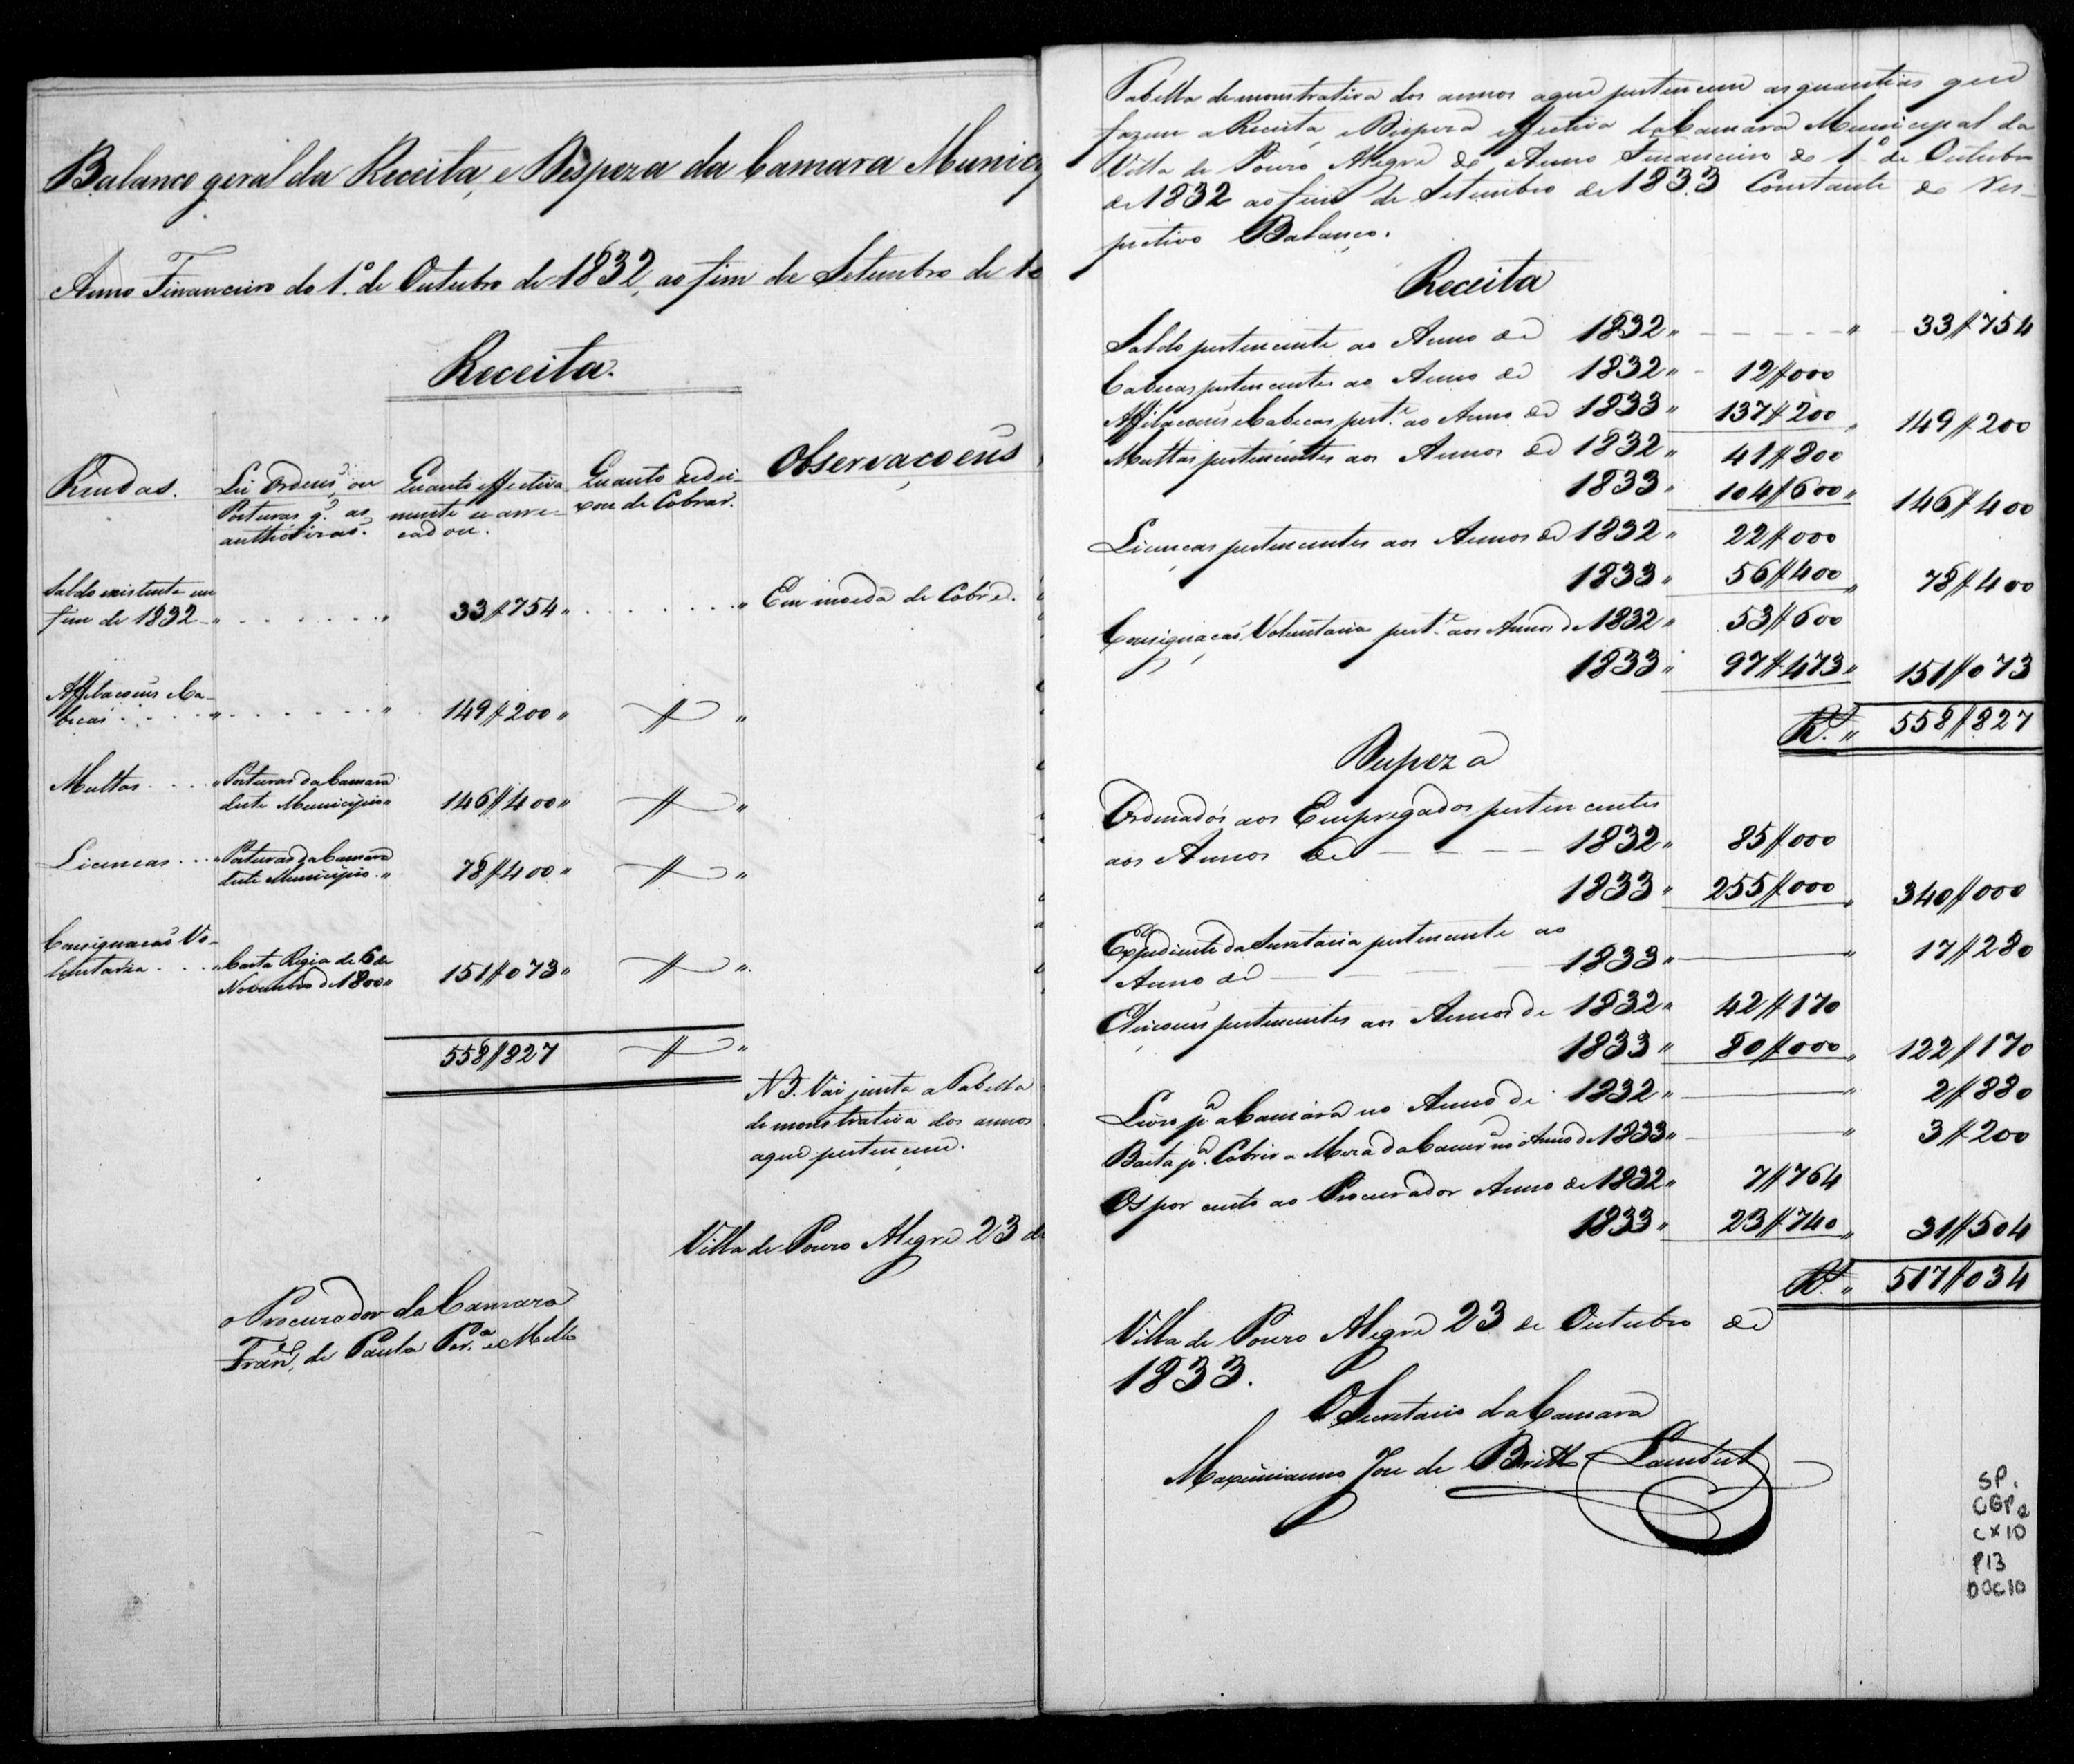 Balanco geral da Receita, e Despeza da Camara Munic
Anno Financeiro do 1.º de Outubro de 1832, ao fim de Setembro de 18
Receita.
Rendas.
Lei Ordens, ou
Posturas q.' as
authorizaõ.
Quanto effectiva-
mente se arre-
cadou.
Quanto se dei-
xou de Cobrar.
Observaçoens
Saldo existente em
fim de 1832 33#754 Em moeda de Cobre.
Affilacoens e Ca-
becas 149#200 #
Multas Posturas da Camara
deste Municipio 146#400 #
Licencas Posturas da Camara
deste Municipio 78#400 #
Consignacaõ Vo-
luntaria Carta Regia de 6 de
Novembro de 1800 151#073 #
558#827 #
NB. Vai junta a Tabella
demonstrativa dos annos
aque pertencem.
Villa de Pouzo Alegre 23 d
o Procurador da Camara
Fran.co de Paula Per.a e Mello
Tabella demonstrativa dos annos aque pertencem as quantias que
fazem a Receita, e Despeza effectiva da Camara Municipal da
Villa de Pouzo Alegre do Anno Financeiro do 1º de Outubro
de 1832 ao fim de Setembro de 1833 Constante do res-
pectivo Balanço.
Receita
Saldo pertencente ao Anno de 1832 33#754
Cabecas pertencentes ao Anno de 1832 12#000
Affilacoens e Cabecas pert.e ao Anno de 1833 137#200 149#200
Multas pertencentes aos Annos de 1832 41#800
1833 104#600 146#400
Licencas pertencentes aos Annos de 1832 22#000
1833 56#400 78#400
Consignaçaõ Voluntaria pert.e aos Annos de 1832 53#600
1833 97#473 151#073
R.s 558#827
Despeza
Ordenados aos Empregados pertencentes
aos Annos de 1832 85#000
1833 255#000 340#000
Expediente da Secretaria pertencente ao
Anno de 1833 17#280
Eleiçoens pertencentes aos Annos de 1832 42#170
1833 80#000 122#170
Livro p.a a Camara no Anno de 1832 2#880
Baeta p.a Cobrir a Meza da Camr.a no Anno de 1833 3#200
Os por cento ao Procurador Anno de 1832 7#764
1833 23#740 31#504
R.s 517#034
Villa de Pouzo Alegre 23 de Outubro de
1833.
O Secretario da Camara
Maximianno Joze de Britto Lambert
SP.
CGPe
CX10
P13
DOC10